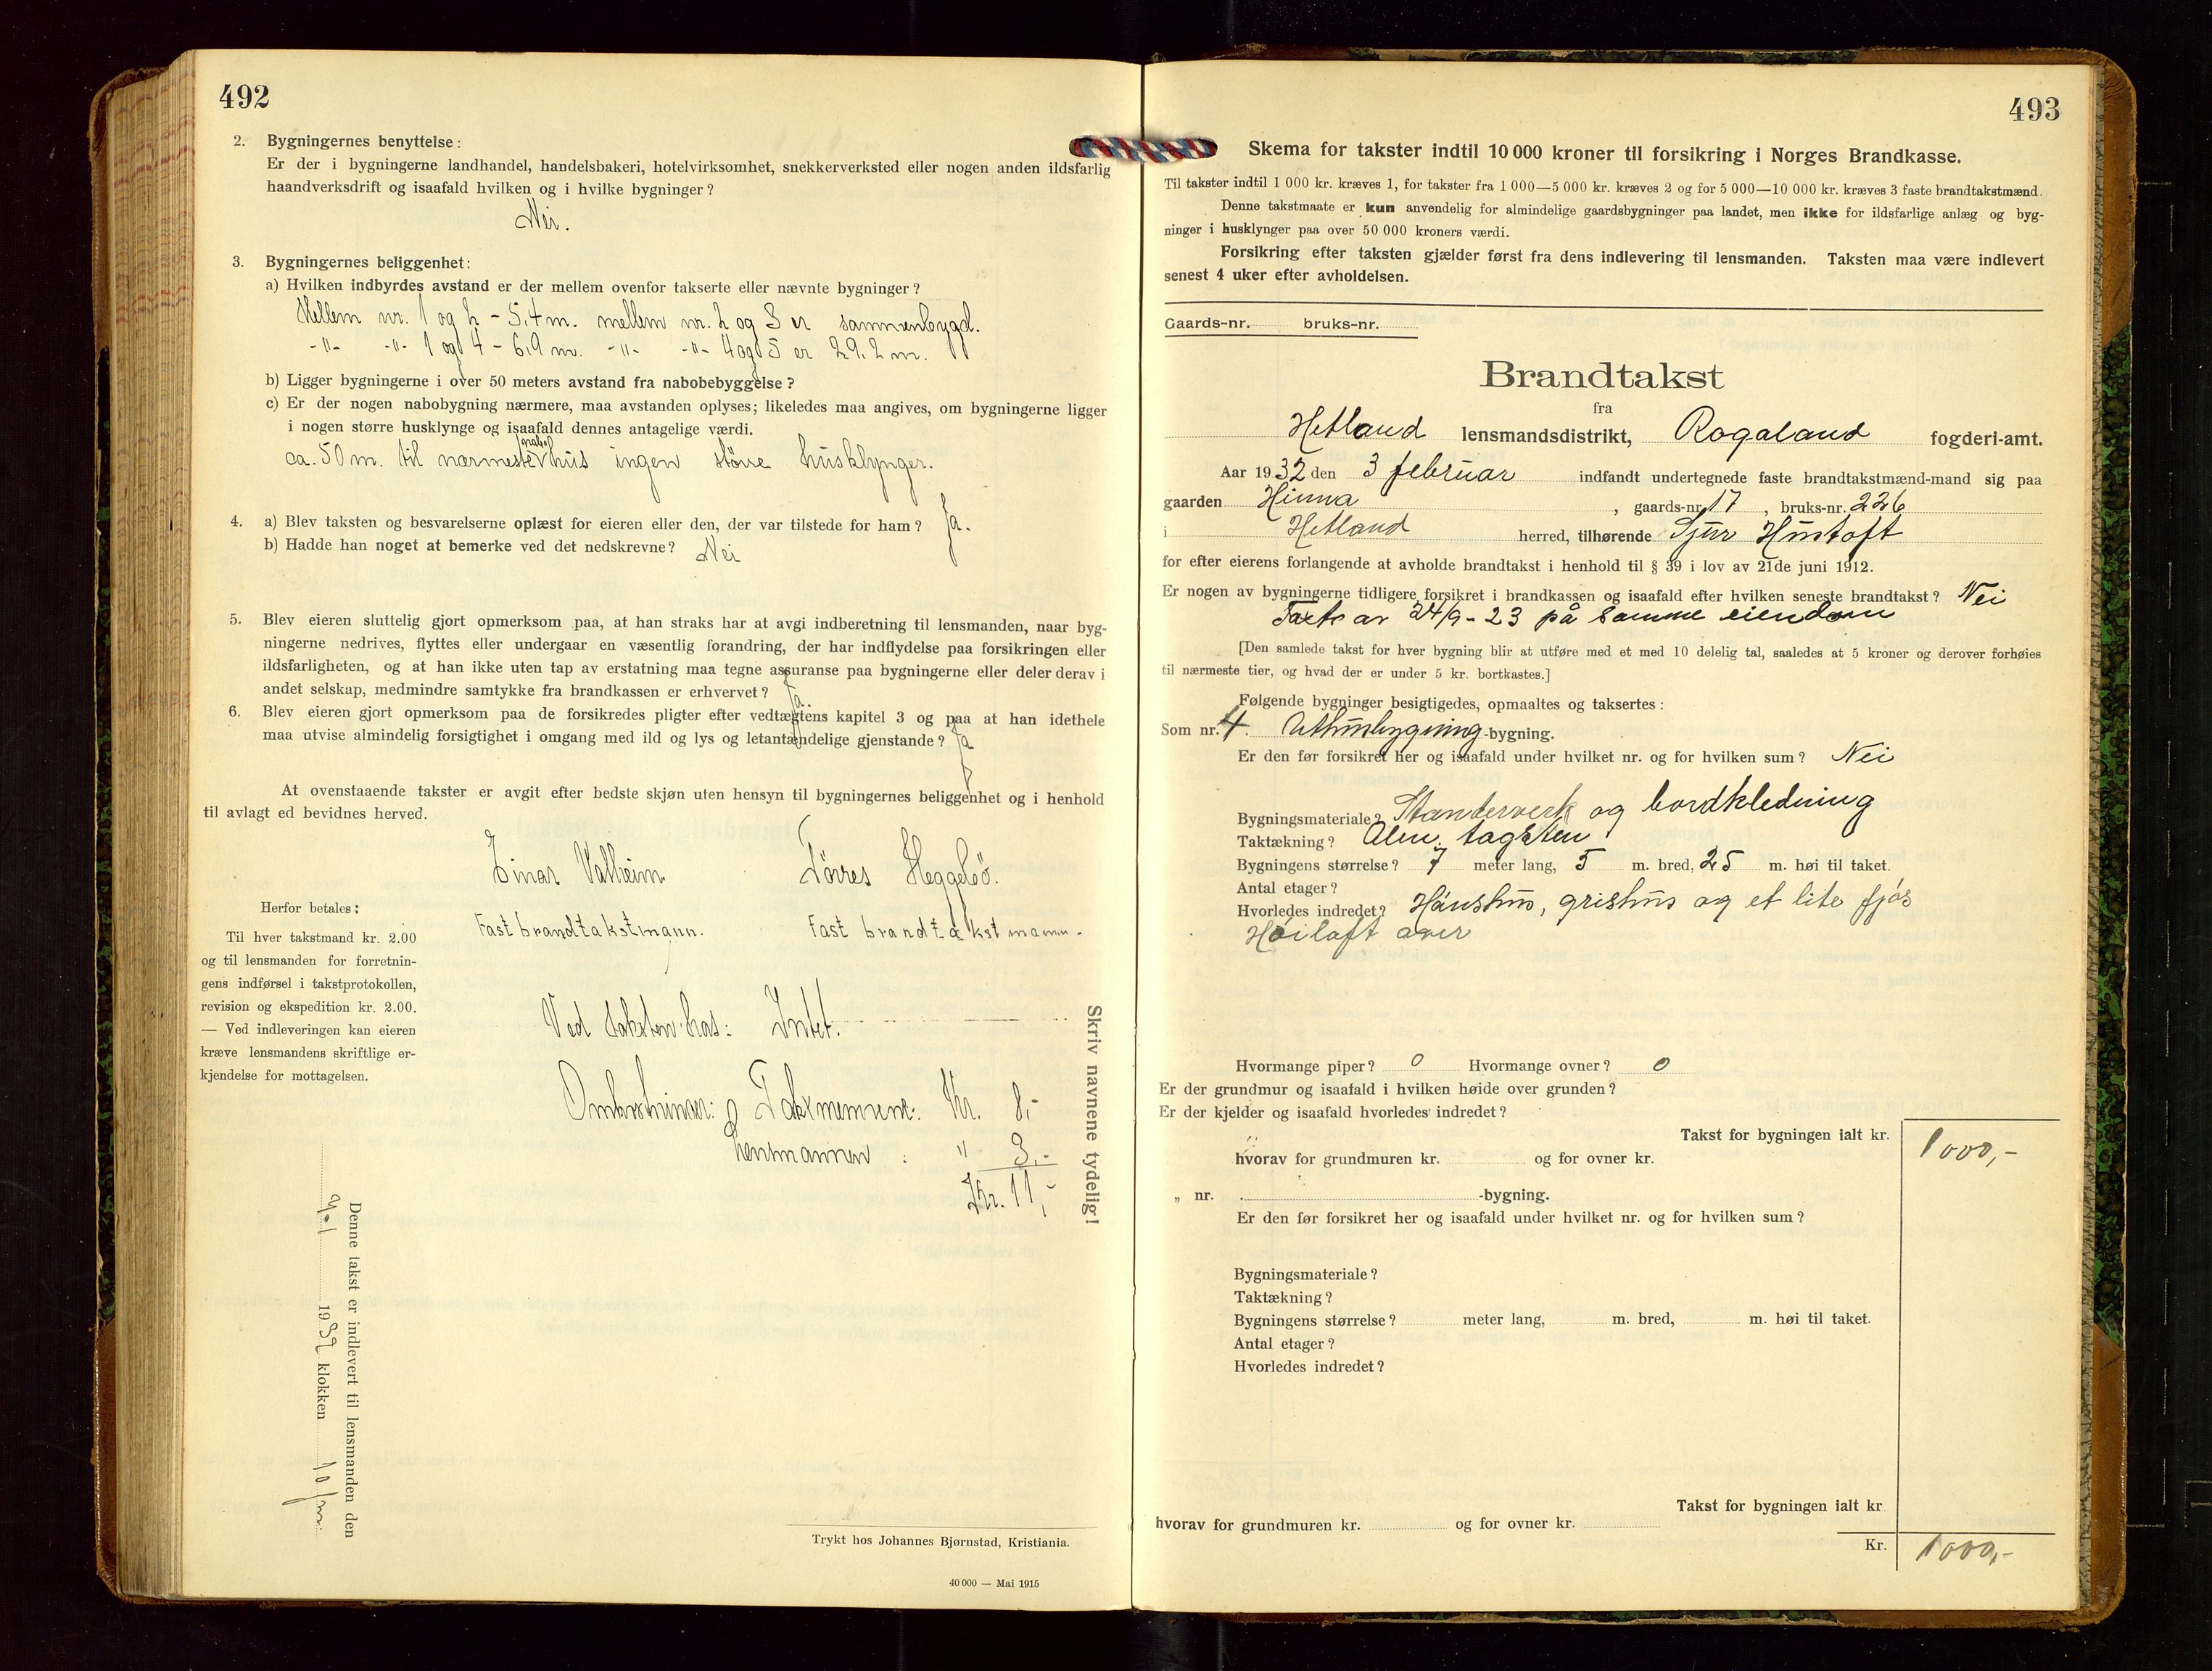 492
2. Bygningernes benyttelse:
Er der i bygningerne landhandel, handelsbakeri, hotelvirksomhet, snekkerverksted eller nogen anden ildsfarlig
haandverksdrift og isaafald hvilken og i hvilke bygninger?
Nei.
3. Bygningernes beliggenhet:
a) Hvilken indbyrdes avstand er der mellem ovenfor takserte eller nævnte bygninger?
Mellem nr. 1 og 2 - 5,4 m. mellem nr. 2 og 3 er sammenbygd.
-"- -"- 1 og 4 - 6,9 m. -"- -"- 4 og 5 er 29,2 m.
b) Ligger bygningerne i over 50 meters avstand fra nabobebyggelse?
c) Er der nogen nabobygning nærmere, maa avstanden oplyses; likeledes maa angives, om bygningerne ligger
i nogen større husklynge og isaafald dennes antagelige værdi.
ca. 50 m. til nærmeste nabohus ingen större husklynger.
4. a) Blev taksten og besvarelserne oplæst for eieren eller den, der var tilstede for ham? Ja.
b) Hadde han noget at bemerke ved det nedskrevne? Nei
5. Blev eieren sluttelig gjort opmerksom paa, at han straks har at avgi indberetning til lensmanden, naar byg-
ningerne nedrives, flyttes eller undergaar en væsentlig forandring, der har indflydelse paa forsikringen eller
ildsfarligheten, og at han ikke uten tap av erstatning maa tegne assuranse paa bygningerne eller deler derav i
andet selskap, medmindre samtykke fra brandkassen er erhvervet? Ja.
6. Blev eieren gjort opmerksom paa de forsikredes pligter efter vedtægtens kapitel 3 og paa at han idethele
maa utvise almindelig forsigtighet i omgang med ild og lys og letantændelige gjenstande? Ja
At ovenstaaende takster er avgit efter bedste skjøn uten hensyn til bygningernes beliggenhet og i henhold
til avlagt ed bevidnes herved.
Einar Valheim Törres Heggelsö.
Fast brandtakstmann. Fast brandtakstmann.
Herfor betales:
Til hver takstmand kr. 2.00
og til lensmanden for forretnin-
gens indførsel i takstprotokollen,
revision og ekspedition kr. 2.00.
— Ved indleveringen kan eieren
kræve lensmandens skriftlige er-
kjendelse for mottagelsen.
Ved taksten hos: Intet.
Omkostninger: Takstmennene: Kr. 8,-
Lensmannen : " 3,-
Kr. 11,-
Skriv navnene tydelig!
Denne takst er indlevert til lensmanden den
9-1 1932 klokken 10 fm.
Trykt hos Johannes Bjørnstad, Kristiania.
40 000 — Mai 1915
493
Skema for takster indtil 10 000 kroner til forsikring i Norges Brandkasse.
Til takster indtil 1 000 kr. kræves 1, for takster fra 1 000—5 000 kr. kræves 2 og for 5 000—10 000 kr. kræves 3 faste brandtakstmænd.
Denne takstmaate er kun anvendelig for almindelige gaardsbygninger paa landet, men ikke for ildsfarlige anlæg og byg-
ninger i husklynger paa over 50 000 kroners værdi.
Forsikring efter taksten gjælder først fra dens indlevering til lensmanden. Taksten maa være indlevert
senest 4 uker efter avholdelsen.
Gaards-nr. bruks-nr.
Brandtakst
fra
Hetland lensmandsdistrikt, Rogaland fogderi-amt.
Aar 1932 den 3 februar indfandt undertegnede faste brandtakstmænd-mand sig paa
gaarden Hinna, gaards-nr. 17, bruks-nr. 226
i Hetland herred, tilhørende Sjur Hustoft
for efter eierens forlangende at avholde brandtakst i henhold til § 39 i lov av 21de juni 1912.
Er nogen av bygningerne tidligere forsikret i brandkassen og isaafald efter hvilken seneste brandtakst? Nei
Takts av 24/9-23 på samme eiendom
[Den samlede takst for hver bygning blir at utføre med et med 10 delelig tal, saaledes at 5 kroner og derover forhøies
til nærmeste tier, og hvad der er under 5 kr. bortkastes.]
Følgende bygninger besigtigedes, opmaaltes og taksertes:
Som nr. 4. Uthusbygning-bygning.
Er den før forsikret her og isaafald under hvilket nr. og for hvilken sum? Nei
Bygningsmateriale? Standerverk og bordkledning
Taktækning? Alm. tagsten
Bygningens størrelse? 7 meter lang, 5 m. bred, 25 m. høi til taket.
Antal etager?
Hvorledes indredet? Hönshus, grishus og et lite fjös
Höiloft over
Hvormange piper? 0 Hvormange ovner? 0
Er der grundmur og isaafald i hvilken høide over grunden?
Er der kjelder og isaafald hvorledes indredet?
Takst for bygningen ialt kr. 1000,-
hvorav for grundmuren kr. og for ovner kr.
„ nr. -bygning.
Er den før forsikret her og isaafald under hvilket nr. og for hvilken sum?
Bygningsmateriale?
Taktækning?
Bygningens størrelse? meter lang, m. bred, m. høi til taket.
Antal etager?
Hvorledes indredet?
Takst for bygningen ialt kr
hvorav for grundmuren kr. og for ovner kr.
Kr. 1000,-